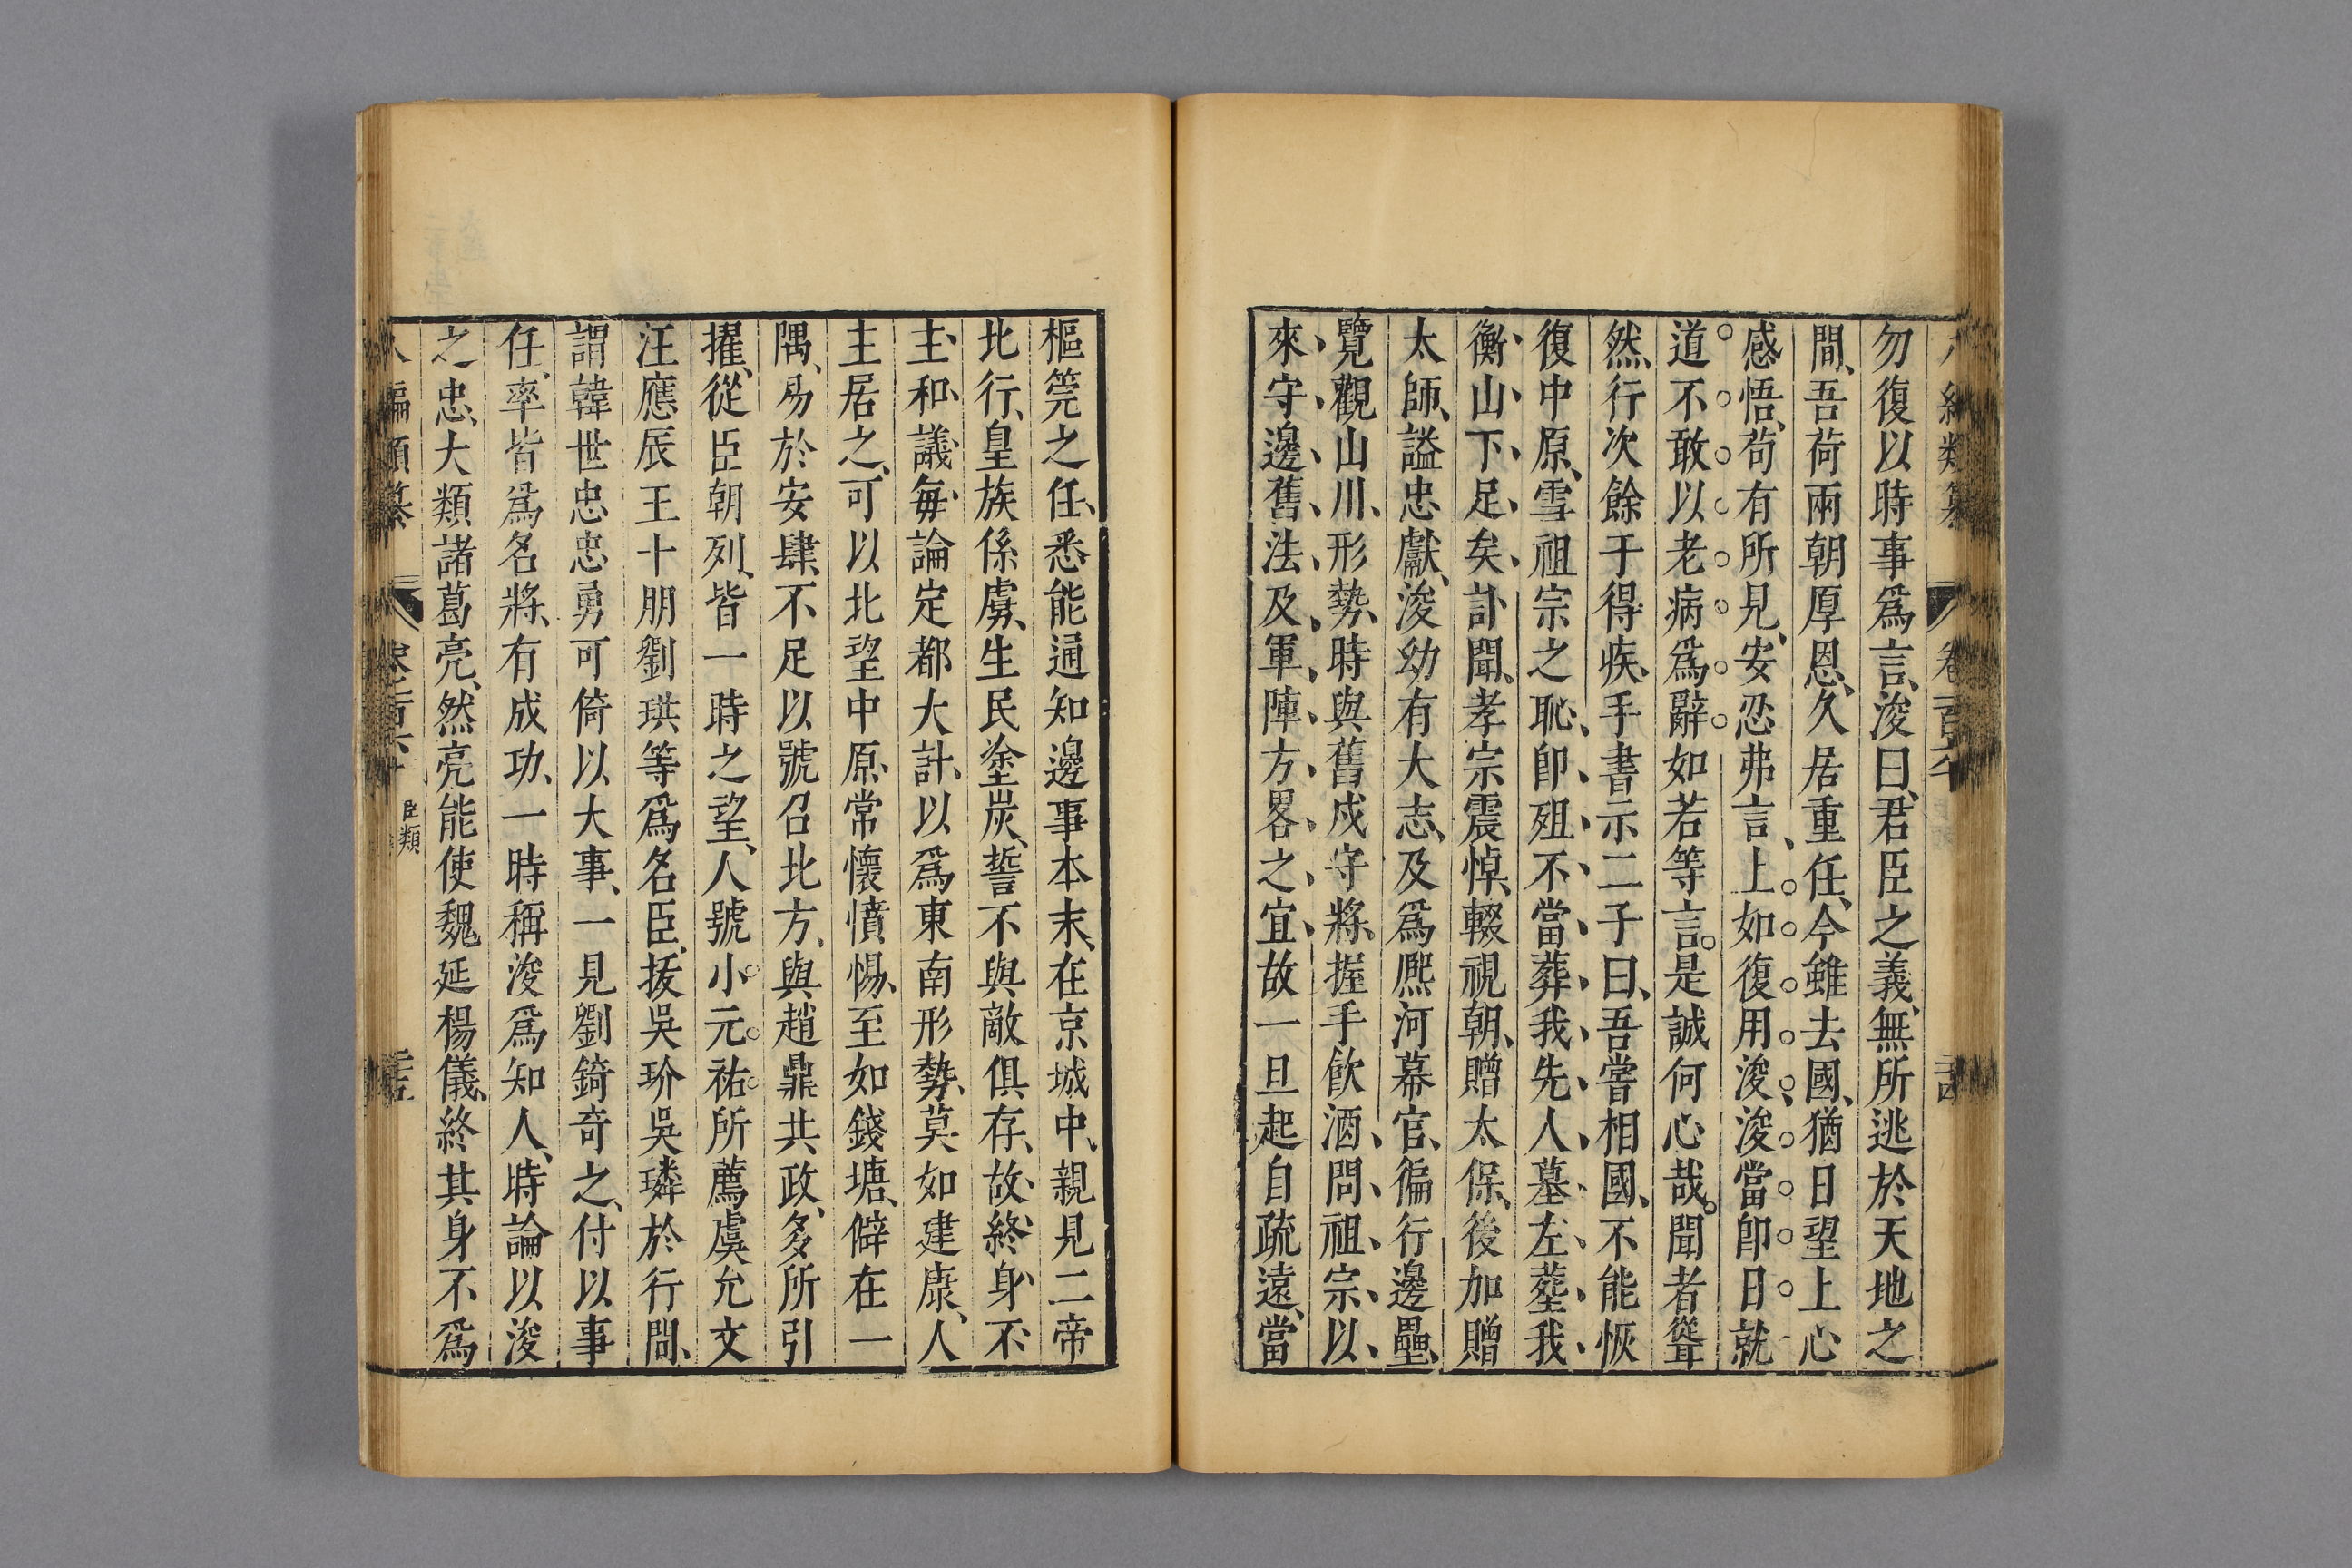 勿復以時事爲言、浚曰、君臣之義、無所逃於天地之
間、吾荷兩朝厚恩、久居重任、今雖去國、猶日望上心
感悟、苟有所見、安忍弗言、上如復用浚、浚當卽日就
道不敢以老病爲辭如若等言。是誠何心哉。聞者聳
然、行次餘干得疾、手書示二子曰、吾嘗相國、不能恢
復中原、雪祖宗之恥、卽殂、不當葬我先人墓左、塟我
衡山下足矣、訃聞、孝宗震悼、輟視朝、贈太保、後加贈
太師、諡忠獻、浚幼有大志、及爲熈河幕官、徧行邊壘、
覽觀山川、形勢、時與舊戍守將、握手飮酒、問祖宗以
來守邊舊法、及軍陣方畧之宜、故一旦起自疏遠、當
樞筦之任、悉能通知邊事本末、在京城中、親見二帝
北行、皇族係虜、生民塗炭、誓不與敵俱存、故終身不
主和議、每論定都大計、以爲東南形勢、莫如建康、人
主居之、可以北望中原、常懷憤惕、至如錢塘、僻在一
隅、易於安肆、不足以號召北方、與趙鼎共政、多所引
擢、從臣朝列、皆一時之望、人號小元祐所薦虞允文
汪應辰王十朋劉珙等爲名臣、拔吳玠吳璘於行間、
謂韓世忠忠勇可倚以大事、一見劉錡奇之、付以事
任、率皆爲名將、有成功、一時稱浚爲知人、時論以浚
之忠、大類諸葛亮、然亮能使魏延楊儀、終其身不爲
編類纂 臣類